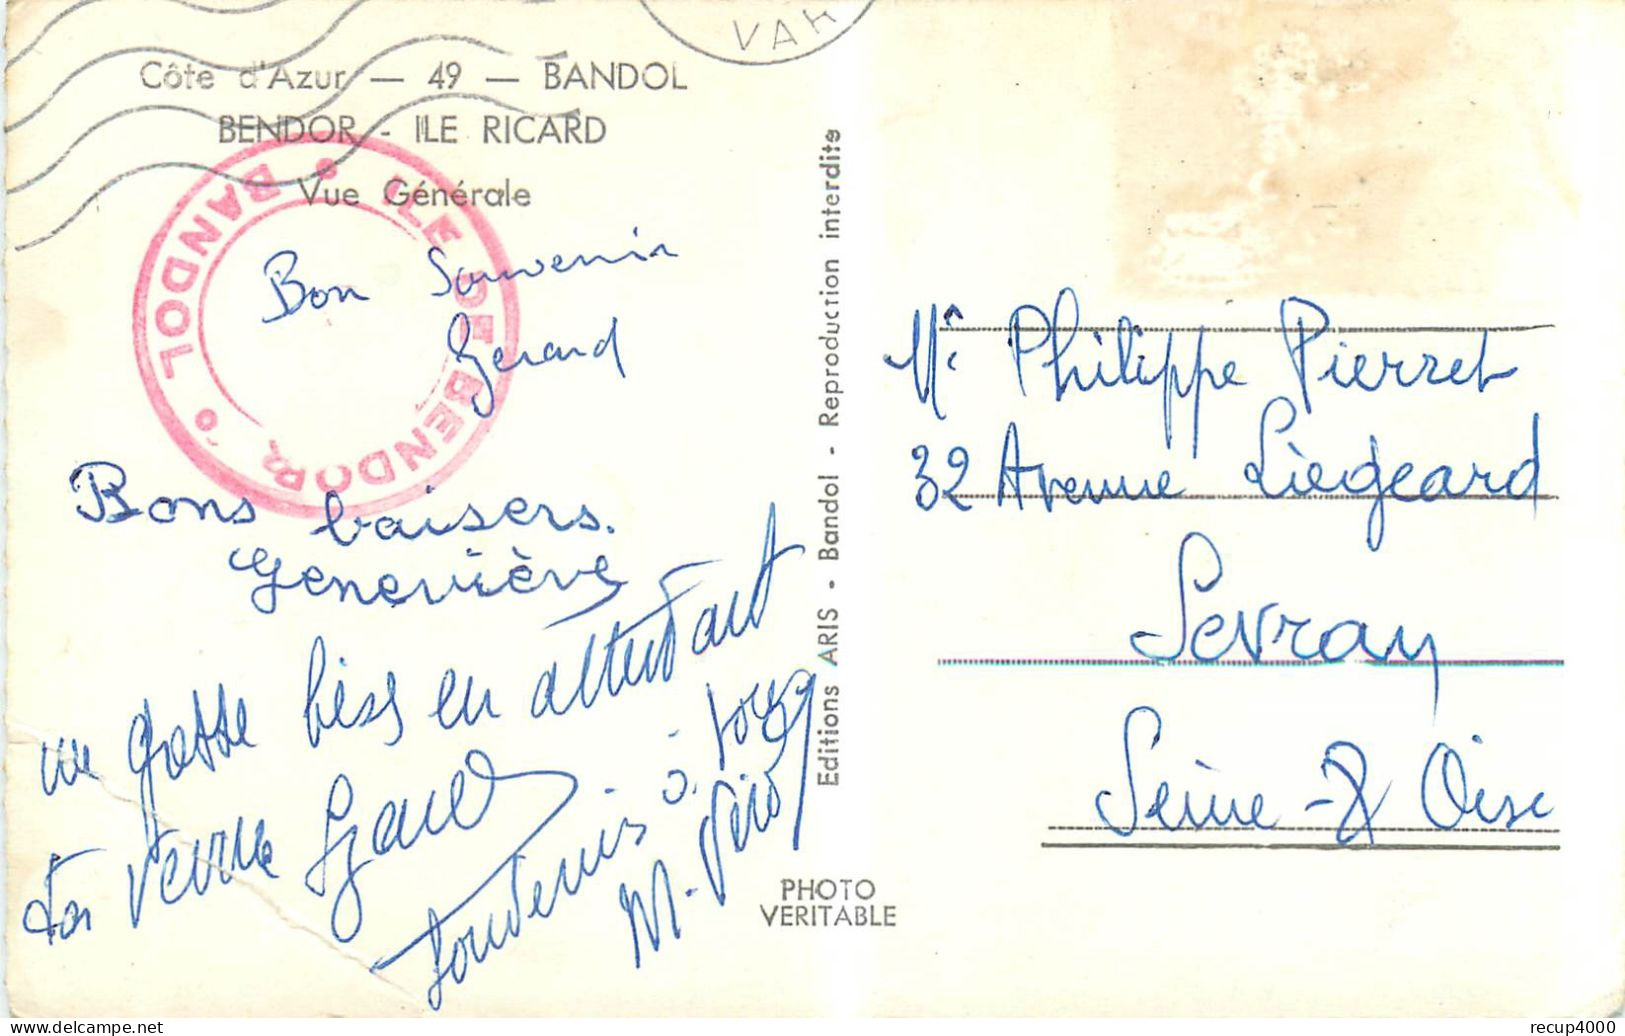 VAR
Côte d'Azur — 49 — BANDOL
BENDOR - ILE RICARD
Vue Générale
ILE DE BENDOR
BANDOL
Bon Souvenir
Gerard
Bons baisers.
Geneviève
une grosse bise en attendant
ta venue
Souvenirs à tous
M.
Editions ARIS - Bandol - Reproduction interdite
PHOTO
VERITABLE
Mr Philippe Pierret
32 Avenue Liègeard
Sevran
Seine-& Oise
recup4000